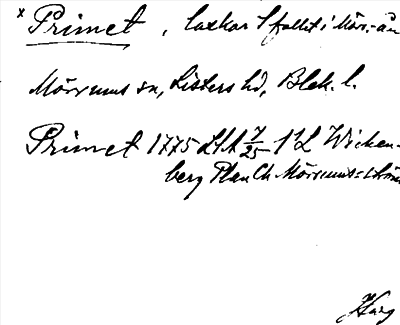 x Primet, laxkar i fallet i Mörr.-ån
Mörrums sn, Listers hd, Blek. l.
Primet 1775 LSA 7/25 1:2 Wicken-
berg Plan Ch Mörrums-ström